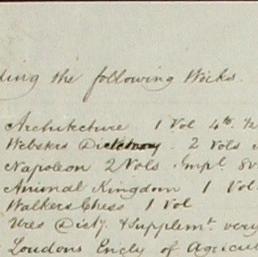 ding the following Works.
Architecture 1 Vol 4to. ½
Websters Dictionary 2 Vols
Napoleon 2 Vols Impl. 8v
Animal Kingdom 1 Vol
Walkers Chess 1 Vol
Ures Dicty. & Supplemt. very
Loudons Encly of Agricul